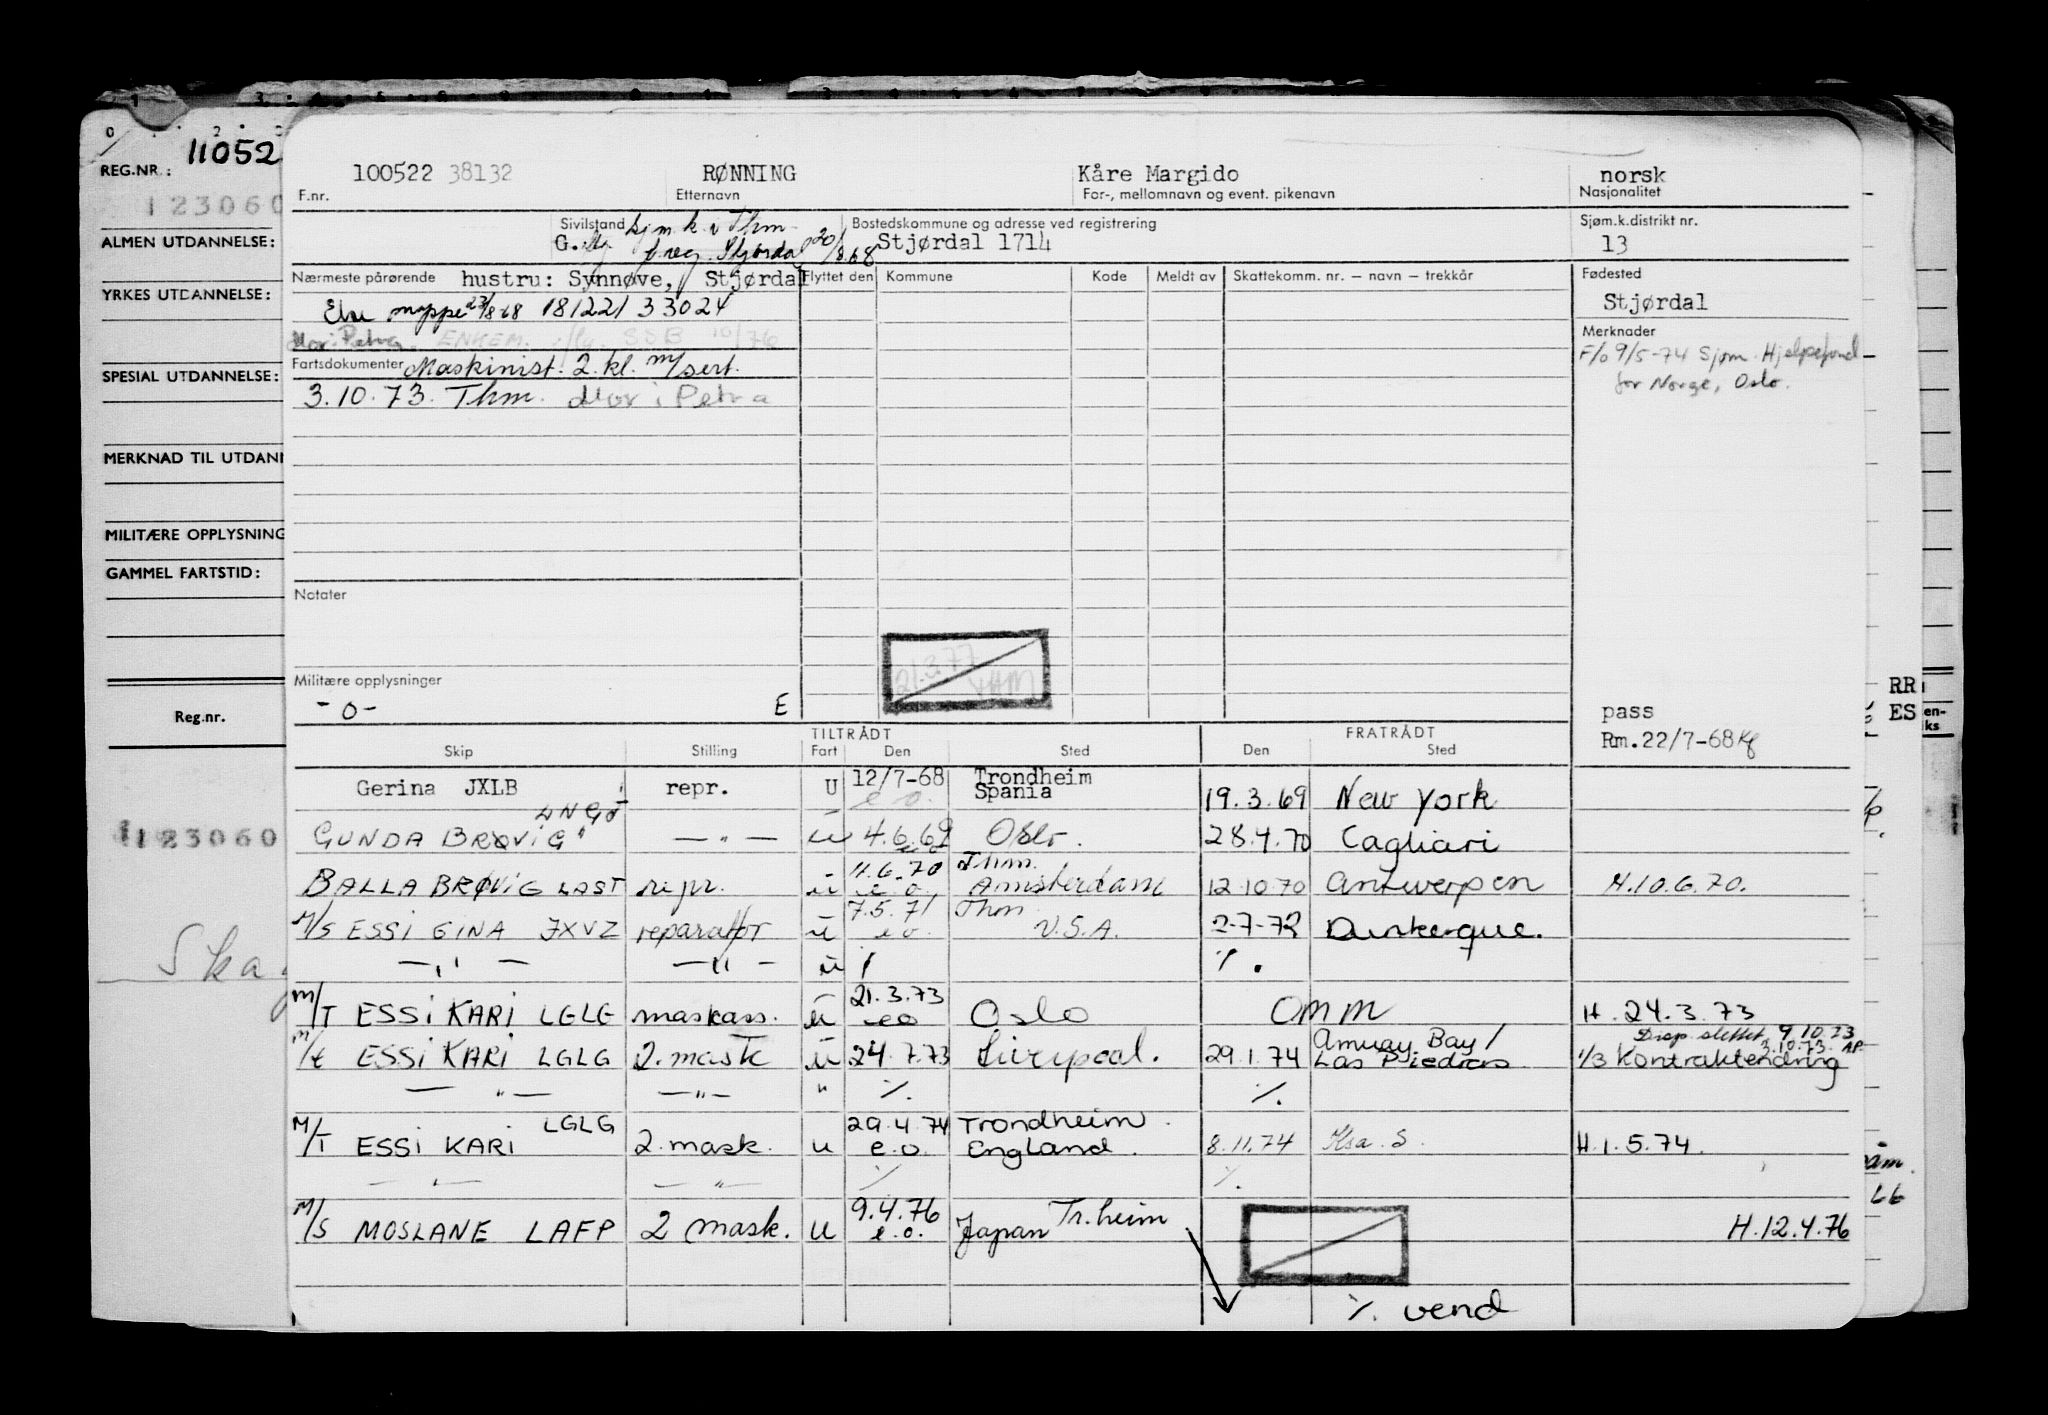 REG.NR.: 11052
123060
ALMEN UTDANNELSE:
YRKES UTDANNELSE:
SPESIAL UTDANNELSE:
MERKNAD TIL UTDAN
MILITÆRE OPPLYSNING
GAMMEL FARTSTID:
Reg.nr.
123060
Ska
100522 38132 RØNNING Kåre Margido norsk
F.nr. Etternavn For-, mellomnavn og event. pikenavn Nasjonalitet
Sivilstand sjm.k. i Thm. Bostedskommune og adresse ved registrering Sjøm.k.distrikt nr.
G. f.reg. Stjørdal 20/8.68 Stjørdal 1714 13
Nærmeste pårørende hustru: Synnøve, Stjørdal Flyttet den Kommune Kode Meldt av Skattekomm. nr. – navn – trekkår Fødested
Stjørdal
mappe 23/8-68 181221 33024
Mor: Petra. ENKEM. SSB 10/76 Merknader
F/o 9/5-74 Sjøm. Hjelpefond
for Norge, Oslo.
Fartsdokumenter Maskinist. 2. kl. m/sert.
3.10.73. Thm. Mor: Petra
Notater
21.3.77
THM
Militære opplysninger
- o - E
pass
Rm. 22/7-68
RR
ES
en-
ks
TILTRÅDT FRATRÅDT
Skip Stilling Fart Den Sted Den Sted
Gerina JXLB repr. U 12/7-68 e.o. Trondheim Spania 19.3.69 New York
LNGJ
GUNDA BRØVIG — " — u 4.6.69 Oslo. 28.4.70 Cagliari
BALLA BRØVIG LAST repr. u 11.6.70 e.o. Thm. Amsterdam 12.10.70 Antwerpen H.10.6.70.
M/S ESSI GINA JXVZ reparatør u 7.5.71 e.o. Thm U.S.A. 2-7-72 Dunkerque.
— " — — " — u ⁒ ⁒
M/T ESSI KARI LGLG maskass. u 21.3.73 e.o. Oslo Omm H. 24.3.73
Disp. slettet 9.10.73
3.10.73. AP.
M/t ESSI KARI LGLG 2. mask u 24.7.73 Liverpool. 29.1.74 Amuay Bay / Las Piedras. 1/3 Kontraktendring
— " — — " — " ⁒ ⁒
M/T ESSI KARI LGLG 2. mask. u 29.4.74 e.o. Trondheim. England. 8.11.74 Ksa. S. H.1.5.74.
— " — — " — ⁒ ⁒
M/S MOSLANE LAFP 2 mask. u 9.4.76 e.o. Japan Tr.heim H.12.4.76
⁒ vend